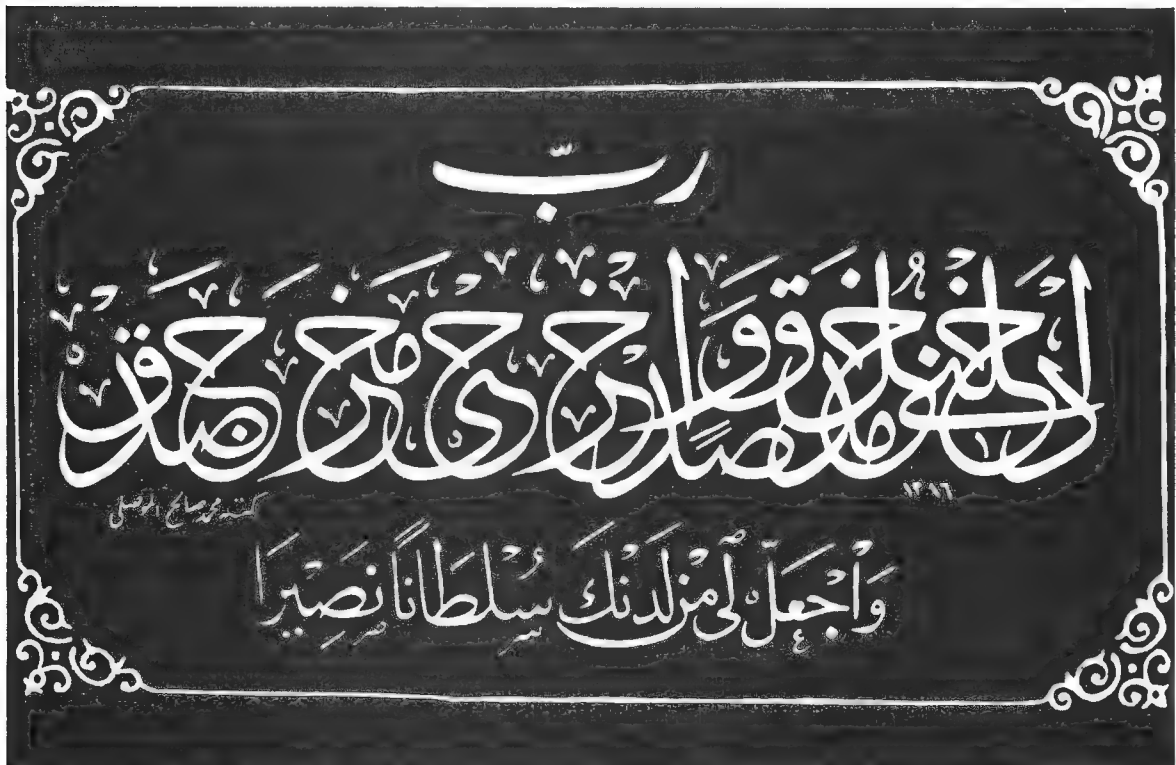 رَبِّ
أَدْخِلْنِي مُدْخَلَ صِدْقٍ وَأَخْرِجْنِي مُخْرَجَ صِدْقٍ
١٣١٦
كتبه محمد صالح الموصلي
وَاجْعَلْ لِي مِنْ لَدُنْكَ سُلْطَانًا نَصِيرًا